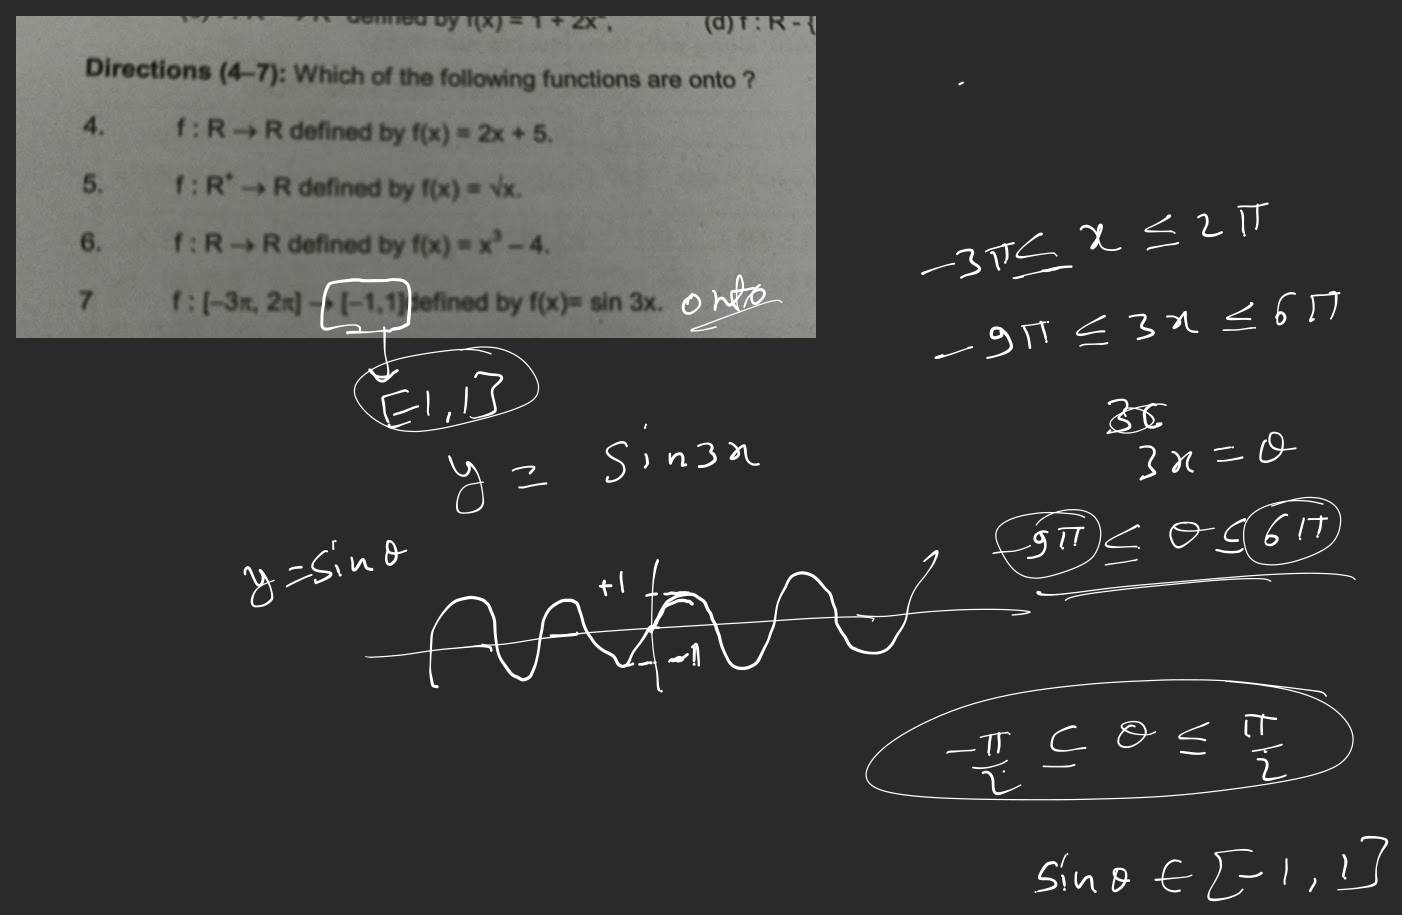 defined by f(x) = 1 + 2x², (d) f : R - {
Directions (4–7): Which of the following functions are onto ?
4. f : R → R defined by f(x) = 2x + 5.
5. f : R⁺ → R defined by f(x) = √x.
6. f : R → R defined by f(x) = x³ – 4.
7 f : [–3π, 2π] → [–1,1] defined by f(x)= sin 3x. onto
[-1, 1]
y = sin3x
y = sin θ
+1
-1
-3π ≤ x ≤ 2π
-9π ≤ 3x ≤ 6π
3x = θ
-9π ≤ θ ≤ 6π
-π/2 ≤ θ ≤ π/2
sin θ ∈ [-1, 1]